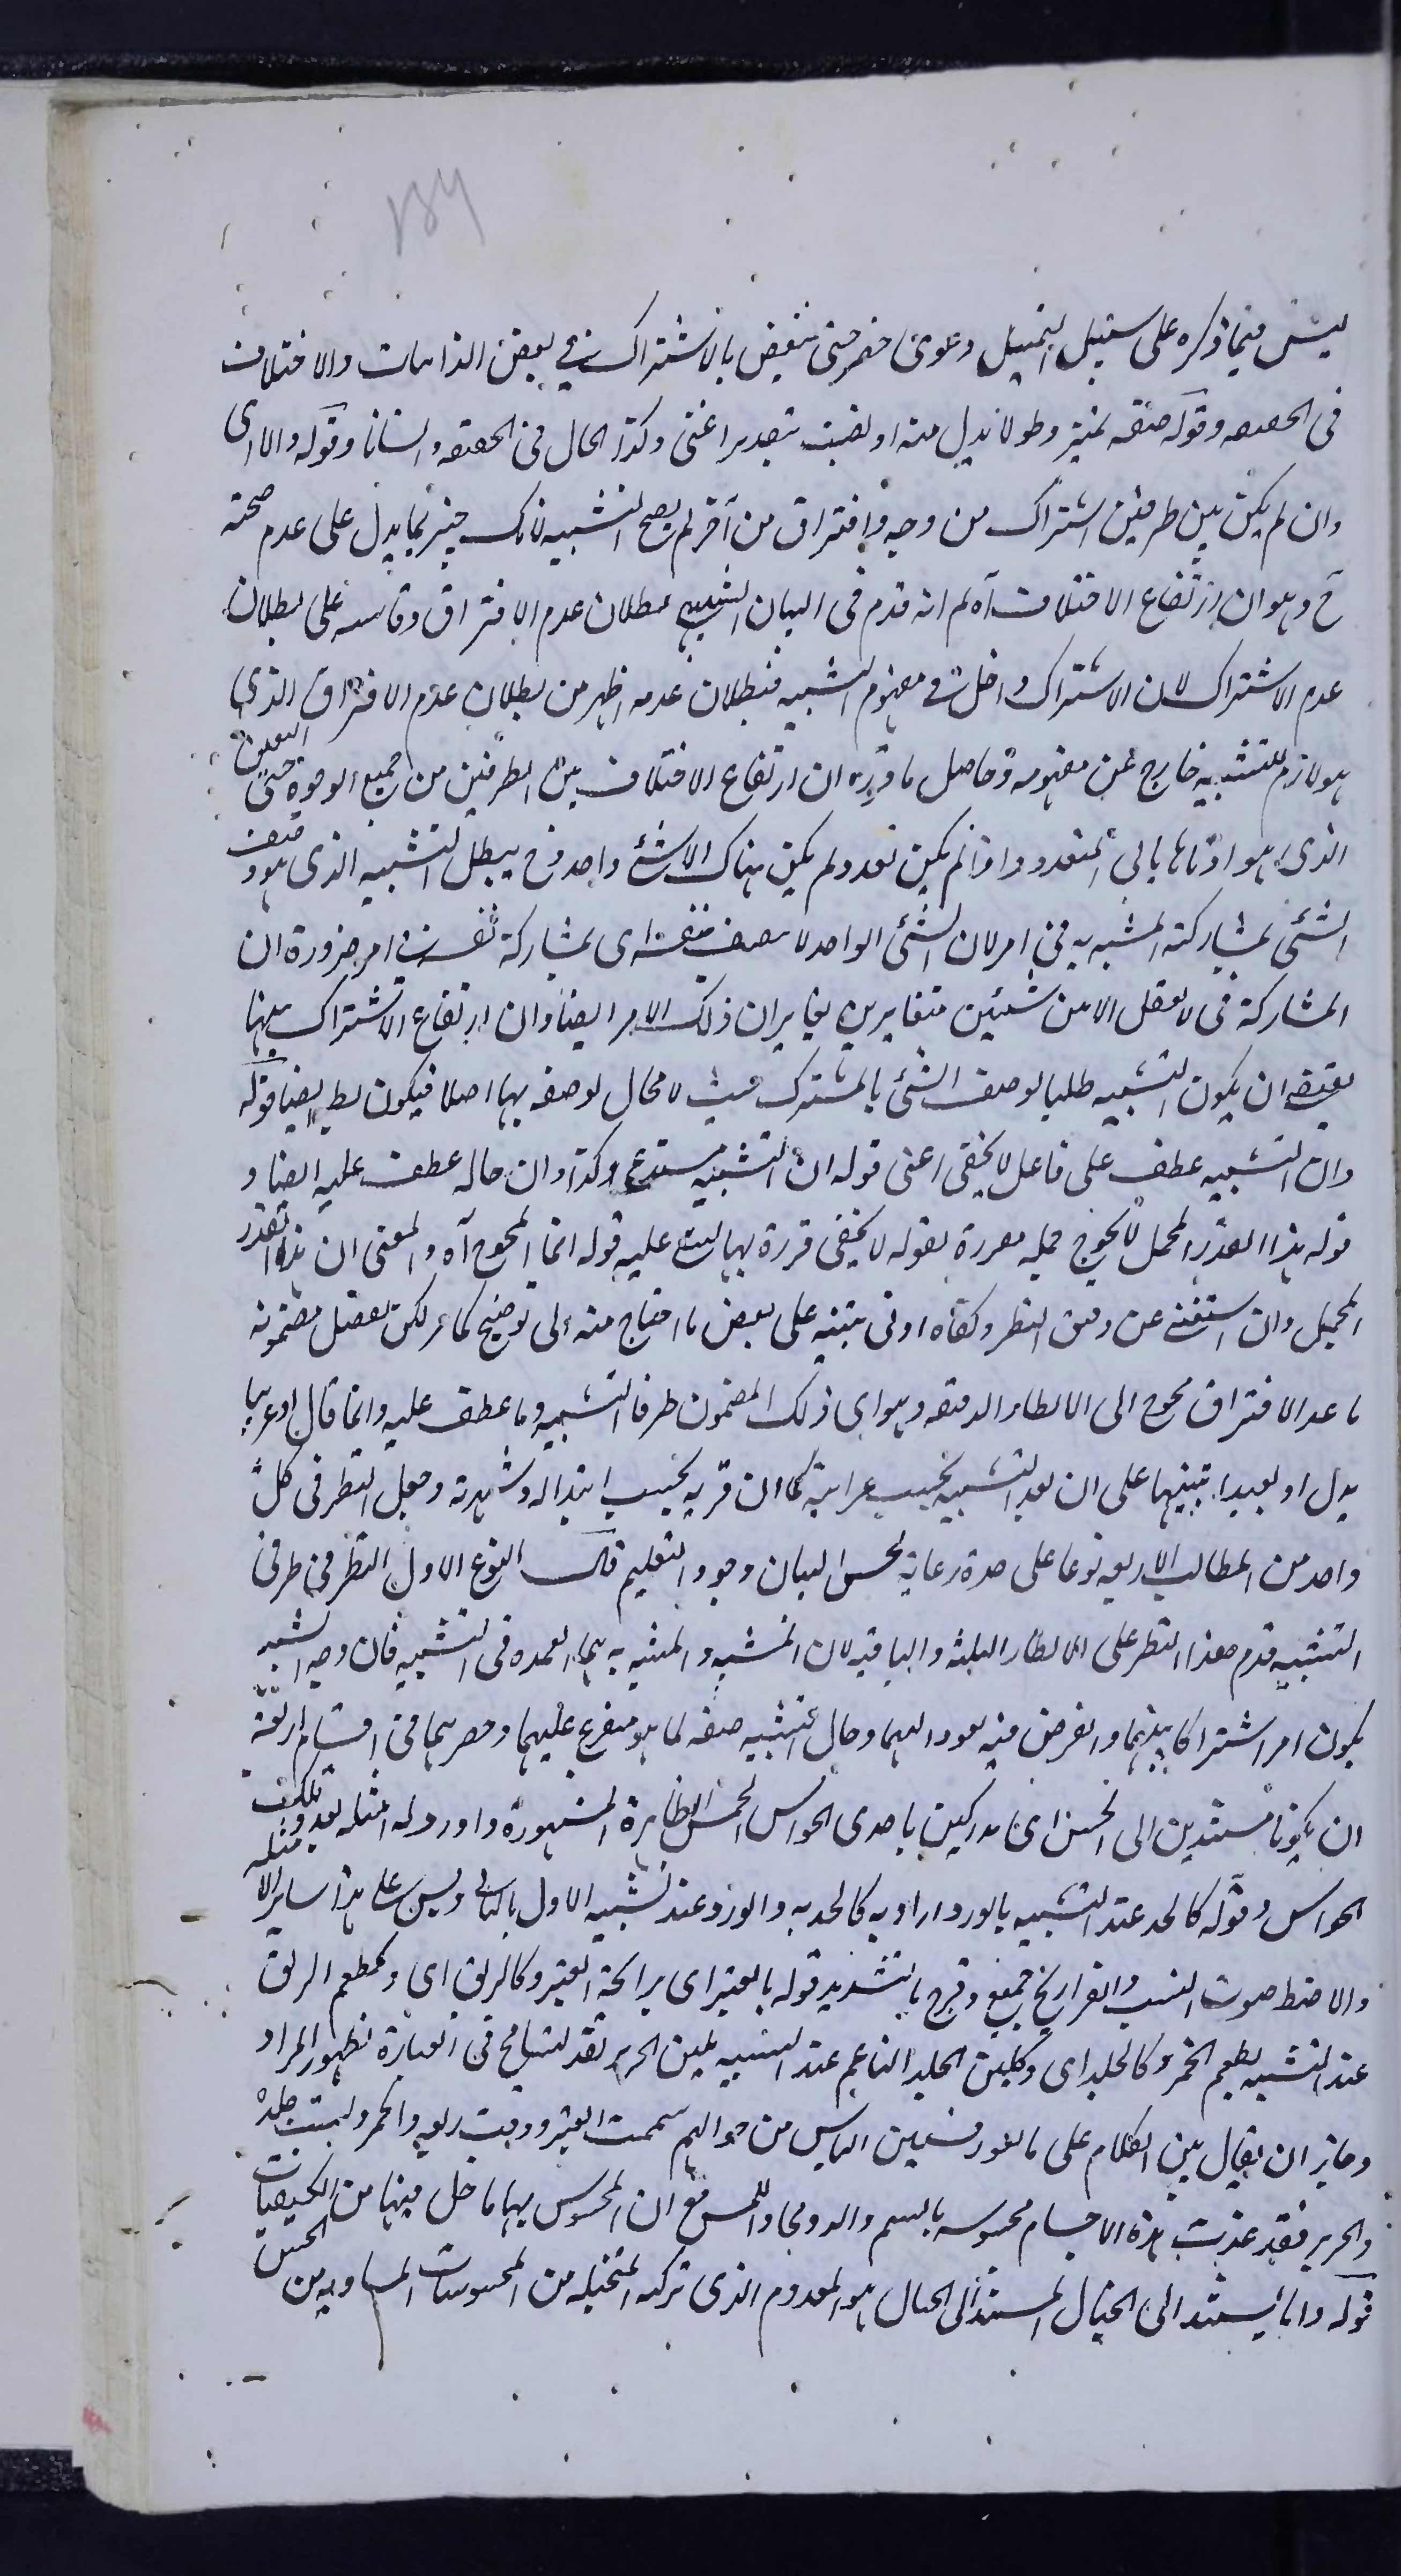 ليس فيما ذكره على سبيل التمثيل دعوى حصر حتى ينقض بالاشتراك في بعض الذاتيات والاختلاف
في الحقيقة وقوله حقيقة تميز وطولا بدل منه او نصب بتقدير اعنى وكذا الحال في الحقيقة وانسانا وقوله والا اى
وان لم يكن بين طرفين اشتراك من وجه وافتراق من آخر لم يصح التشبيه لانك خبير بما يدل على عدم صحته
ح وهو ان ارتفاع الاختلاف آه ثم انه قدم في البيان بطلان عدم الافتراق وقاسه على بطلان
عدم الاشتراك لان الاشتراك داخل في مفهوم التشبيه فبطلان عدمه اظهر من بطلان عدم الافتراق الذي
هو لازم للتشبيه خارج عن مفهومه وحاصل ما قرره ان ارتفاع الاختلاف بين الطرفين من جميع الوجوه حتى التعين
الذي هو ادناها يابى التعدد واذا لم يكن تعدد ولم يكن هناك الا شئ واحد وح يبطل التشبيه الذى هو وصف
الشئ بمشاركته المشبه به في امر لان الشئ الواحد لا يتصف بنفسه اى بمشاركة نفسه في امر ضرورة ان
المشاركة في لا تعقل الا من شيئين متغايرين يغايران ذلك الامر ايضا وان ارتفاع الاشتراك بينهما
يقتضى ان يكون التشبيه طلبا لوصف الشئ بالمشترك حيث لا مجال لوصفه بها اصلا فيكون بط ايضا قوله
وان التشبيه عطف على فاعل لا يخفى اعنى قوله ان التشبيه مستدع وكذا وان حاله عطف عليه ايضا و
قوله هذا القدر المجمل لا يحوج جملة مقررة لقوله لا يخفى قررة بها ليبتنى عليه قوله انما المحوج آه والمعنى ان هذا القدر
المجمل وان استغنى عن دقيق النظر وكفاه ادنى تنبه على بعض ما احتاج منه الى توضيح كما مر لكن تفصيل مضمونه
ما عدا الافتراق محوج الى الانظار الدقيقة وهو اى ذلك المضمون طرفا التشبيه وما عطف عليه وانما قال او غريبا
بدل او بعيدا تنبيها على ان بعد التشبيه بحسب غرابته كما ان قربه بحسب ابتذاله وشهرته وجعل النظر في كل
واحد من المطالب الاربعة نوعا على حدة رعاية لحسن البيان وجودة التعليم قال النوع الاول النظر في طرفى
التشبيه قدم هذا النظر على الانظار الثلثة والباقية لان المشبه والمشبه به هما العمدة في التشبيه فان وجه الشبه
يكون امرا اشتراكا بينهما والغرض منه يعود اليهما وحال التشبيه صفة لما هو متفرع عليهما وحصرهما في اقسام اربعة
ان يكونا مستندين الى الحس اى مدركين باحدى الحواس الخمس الظاهرة المشهورة واورد له امثلة بعدد تلك
الحواس وقوله كالخد عند التشبيه بالورد اراد به كالخد به والورد عند تشبيه الاول بالثاني وقس على هذا ساير الامثلة
والاضط صوت والفراريخ جمع وفرخ بالتشديد قوله بالعنبر اى برائحة العنبر وكالريق اى وكطعم الريق
عند التشبيه بطعم الخمر وكالجلد اى وكلين الجلد الناعم عند التشبيه بلين الحرير فقد تسامح في العبارة لظهور المراد
وجايز ان يقال بنى الكلام على ما تعورف بين الناس من قولهم شممت العنبر وذقت ريقه والخمر ولمست جلده
والحرير فقد عدت هذه الاجسام محسوسة بالشم والذوق واللمس مع ان المحسوس بها ما حل فيها من الكيفيات
قوله واما يستند الى الخيال المستند الى الخيال هو المعدوم الذى تركبه المتخيلة من المحسوسات المتأدية من الحس